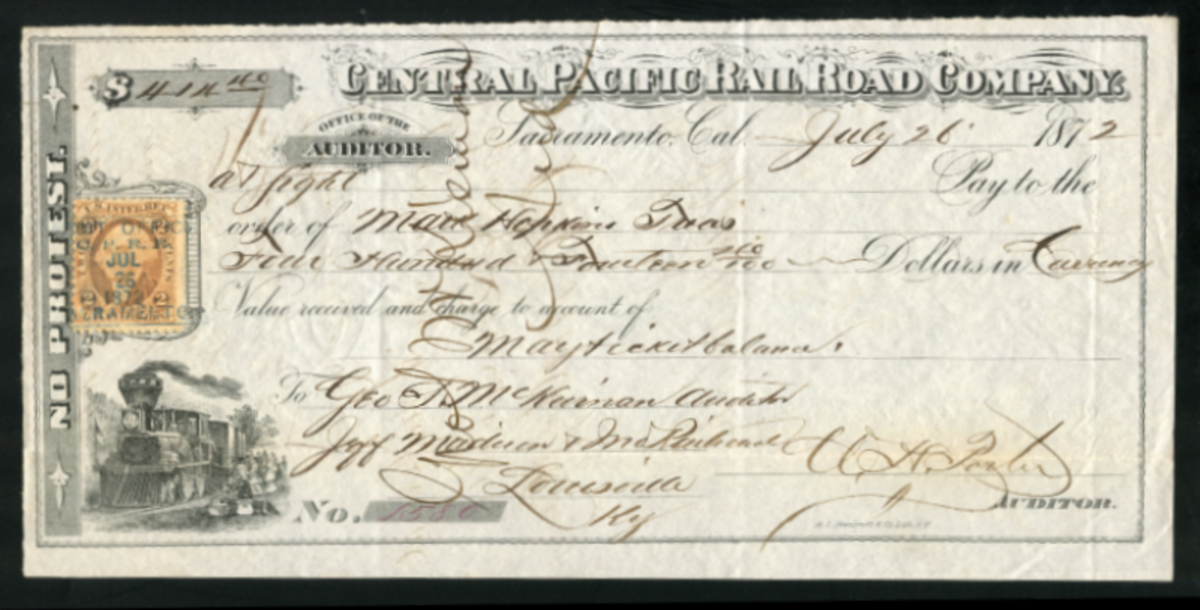 $ 414 40
CENTRAL PACIFIC RAIL ROAD COMPANY.
OFFICE OF THE
AUDITOR.
Sacramento, Cal. July 26 1872
at sight Pay to the
order of Mark Hopkins Treas
Four Hundred & Fourteen 40/100 Dollars in Currency
Value received and charge to account of
May ticket balance.
To Geo T. McKiernan Auditor
Jeff Madison & Railroad
Louisville
Ky
AUDITOR.
No.
NO PROTEST.
U.S. INTER. REV.
C. P. R. R.
JUL
26
1872
2 2